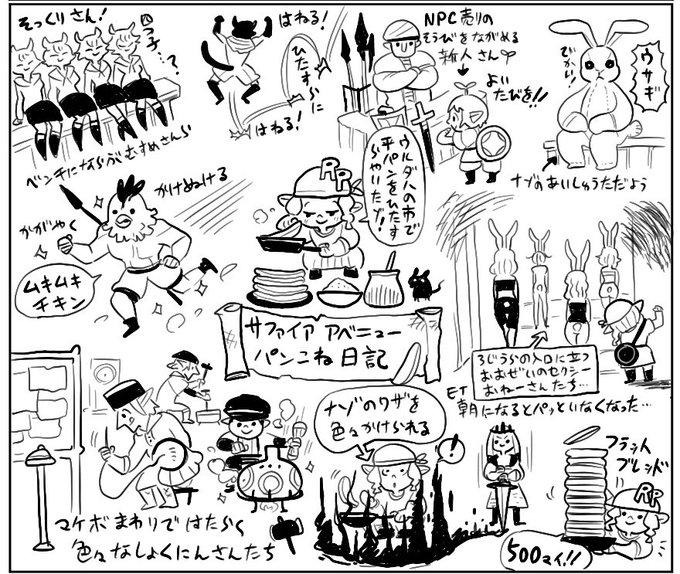 そっくりさん!
四つ子…?
ベンチにならぶむすめさんら
はねる!
ひたすらに
はねる!
NPC売りの
そうびをながめる
新人さん
よい
たびを!!
ウサギ
でかい!
ナゾのあいしゅうただよう
かけぬける
かがやく
ムキムキ
チキン
RP
ウルダハの市で
平パンをひたす
らやいたゾ!
サファイア アベニュー
パンこね 日記
ろじうらの入口に立つ
おおぜいのセクシー
おねーさんたち…
ET
朝になるとパッといなくなった…
マケボまわりではたらく
色々なしょくにんさんたち
ナゾのワザを
色々かけられる
!
フラット
ブレッド
RP
500マイ!!